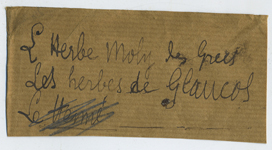 L'Herbe Moly des Grecs
Les herbes de Glaucos
Le